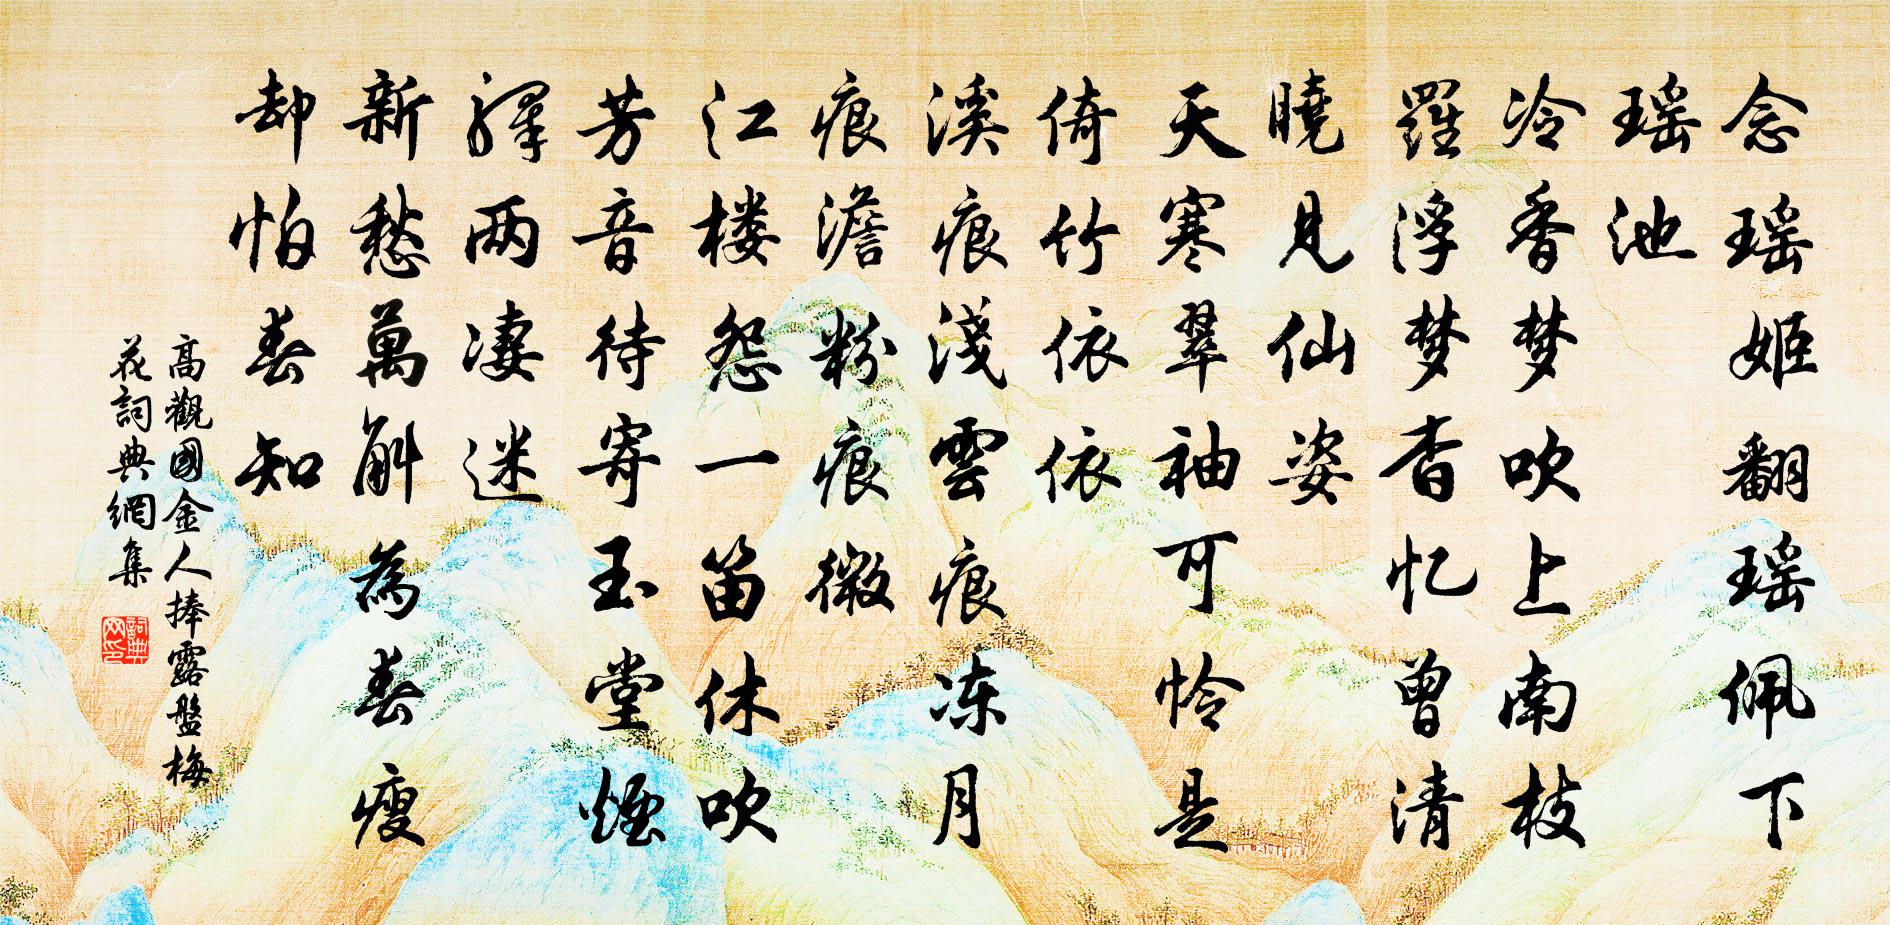 念瑶姬翻瑶佩下
瑶池
冷香梦吹上南枝
羅浮梦杳忆曾清
曉見仙姿
天寒翠袖可怜是
倚竹依依
溪痕淺雲痕冻月
痕澹粉痕微
江楼怨一笛休吹
芳音待寄玉堂煙
驛两凄迷
新愁萬斛為春瘦
却怕春知
高觀國金人捧露盤梅
花詞典網集
詞典
网印